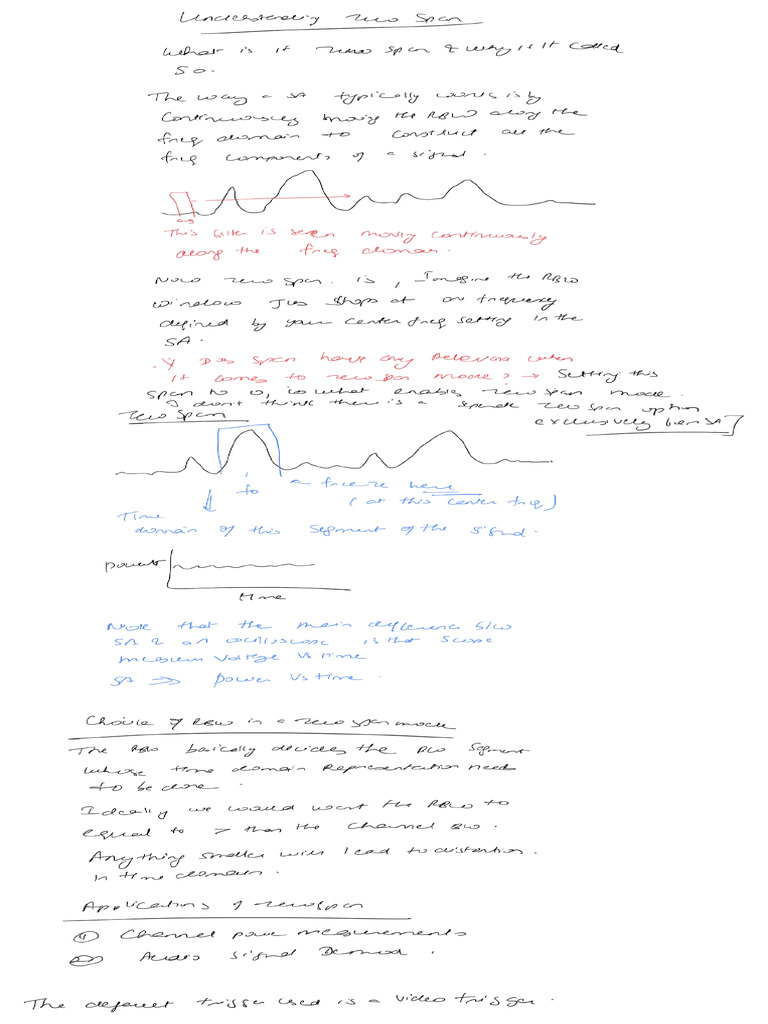 Understanding Zero Span
What is it zero span & why is it called
so.
The way a SA typically works is by
Continuously moving the RBW along the
freq domain to construct all the
freq components of a signal.
This filter is seen moving continuously
along the freq domain.
Now zero span is, Imagine the RBW
window just stops at on frequency
defined by your center freq setting in the
SA.
Does span have any relevance when
it comes to zero span mode? → Setting this
span to 0, is what enables zero span mode.
I don't think there is a separate zero span option
exclusively in SA
Zero Span
fo
a freeze here
(at this center freq)
Time
domain of this segment of the signal.
power
time
Note that the main difference b/w
SA & an oscilloscope is that scope
measures voltage vs time
SA ⇒ power vs time.
Choice of RBW in a zero span mode
The RBW basically decides the BW segment
whose time domain representation need
to be done.
Ideally we would want the RBW to
equal to > than the channel BW.
Anything smaller will lead to distortion.
in time domain.
Applications of zero span
① Channel power measurements
② Audio signal Demod.
The default trigger used is a video trigger.